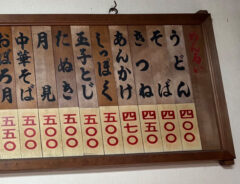 めんるい
うどん 四〇〇
そば 四〇〇
きつね 四五〇
あんかけ 四七〇
しっぽく 五〇〇
玉子とじ 五〇〇
たぬき 五〇〇
月見 五〇〇
中華そば 五〇〇
おぼろ月 五五〇